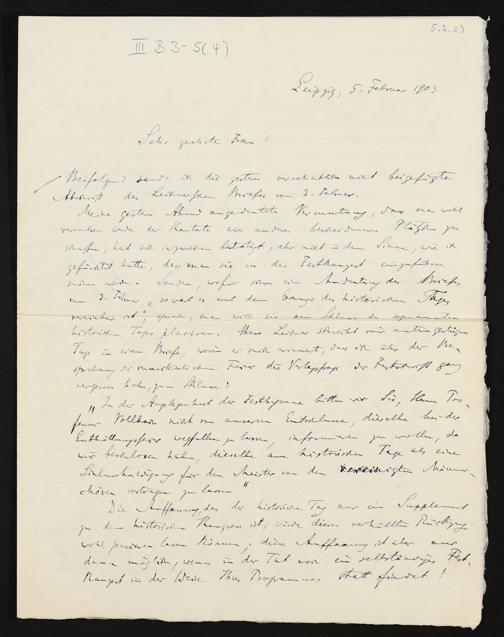 5.2.03
III B 3-5(4)
Leipzig, 5. Februar 1903
Sehr geehrte Frau!
Beifolgend sende ich die gestern versehentlich nicht beigefügte
Abschrift des Briefes vom 3. Februar.
Meine gestern Abend angedeutete Vermutung, dass man wohl
versuchen würde der Kantate ein andres, bescheideneres Plätzchen zu
schaffen, hat sich inzwischen bestätigt; aber nicht in dem Sinne, wie ich
gefürchtet hatte, dass man sie in das Festkonzert
würde. Sondern, wofür schon eine Andeutung des Briefes
vom 3. Februar, "soweit es nach dem Gange des historischen Tages
ist", sprach, man will sie am Schluss des sogenannten
historischen Tages plazieren. Herr schreibt mir unterm gestrigen
Tage in einem Briefe, worin er mich erinnert, dass ich über der Be-
sprechung der musikalischen Feier die Verlagsfrage der Festschrift ganz
vergessen habe, zum Schluss:
"In der Angelegenheit der Festhymne bitten wir Sie, Herrn Pro-
fessor Vollhardt von unserem Entschlusse, dieselbe bei der
Enthüllungsfeier wegfallen zu lassen, informieren zu wollen, da
wir beschlossen haben, dieselbe am historischen Tage als eine
Schlusshuldigung für den Meister von den vereinigten Männer-
chören vortragen zu lassen"
Die Auffassung, dass der historische Tag nur ein Supplement
zu dem historischen Kongress ist, würde diesen verhüllten Rückzug
wohl passieren lassen können; diese Auffassung ist aber nur
dann möglich, wenn in der Tat noch ein selbständiges Fest-
Konzert in der Weise Ihres Programmes stattfindet!